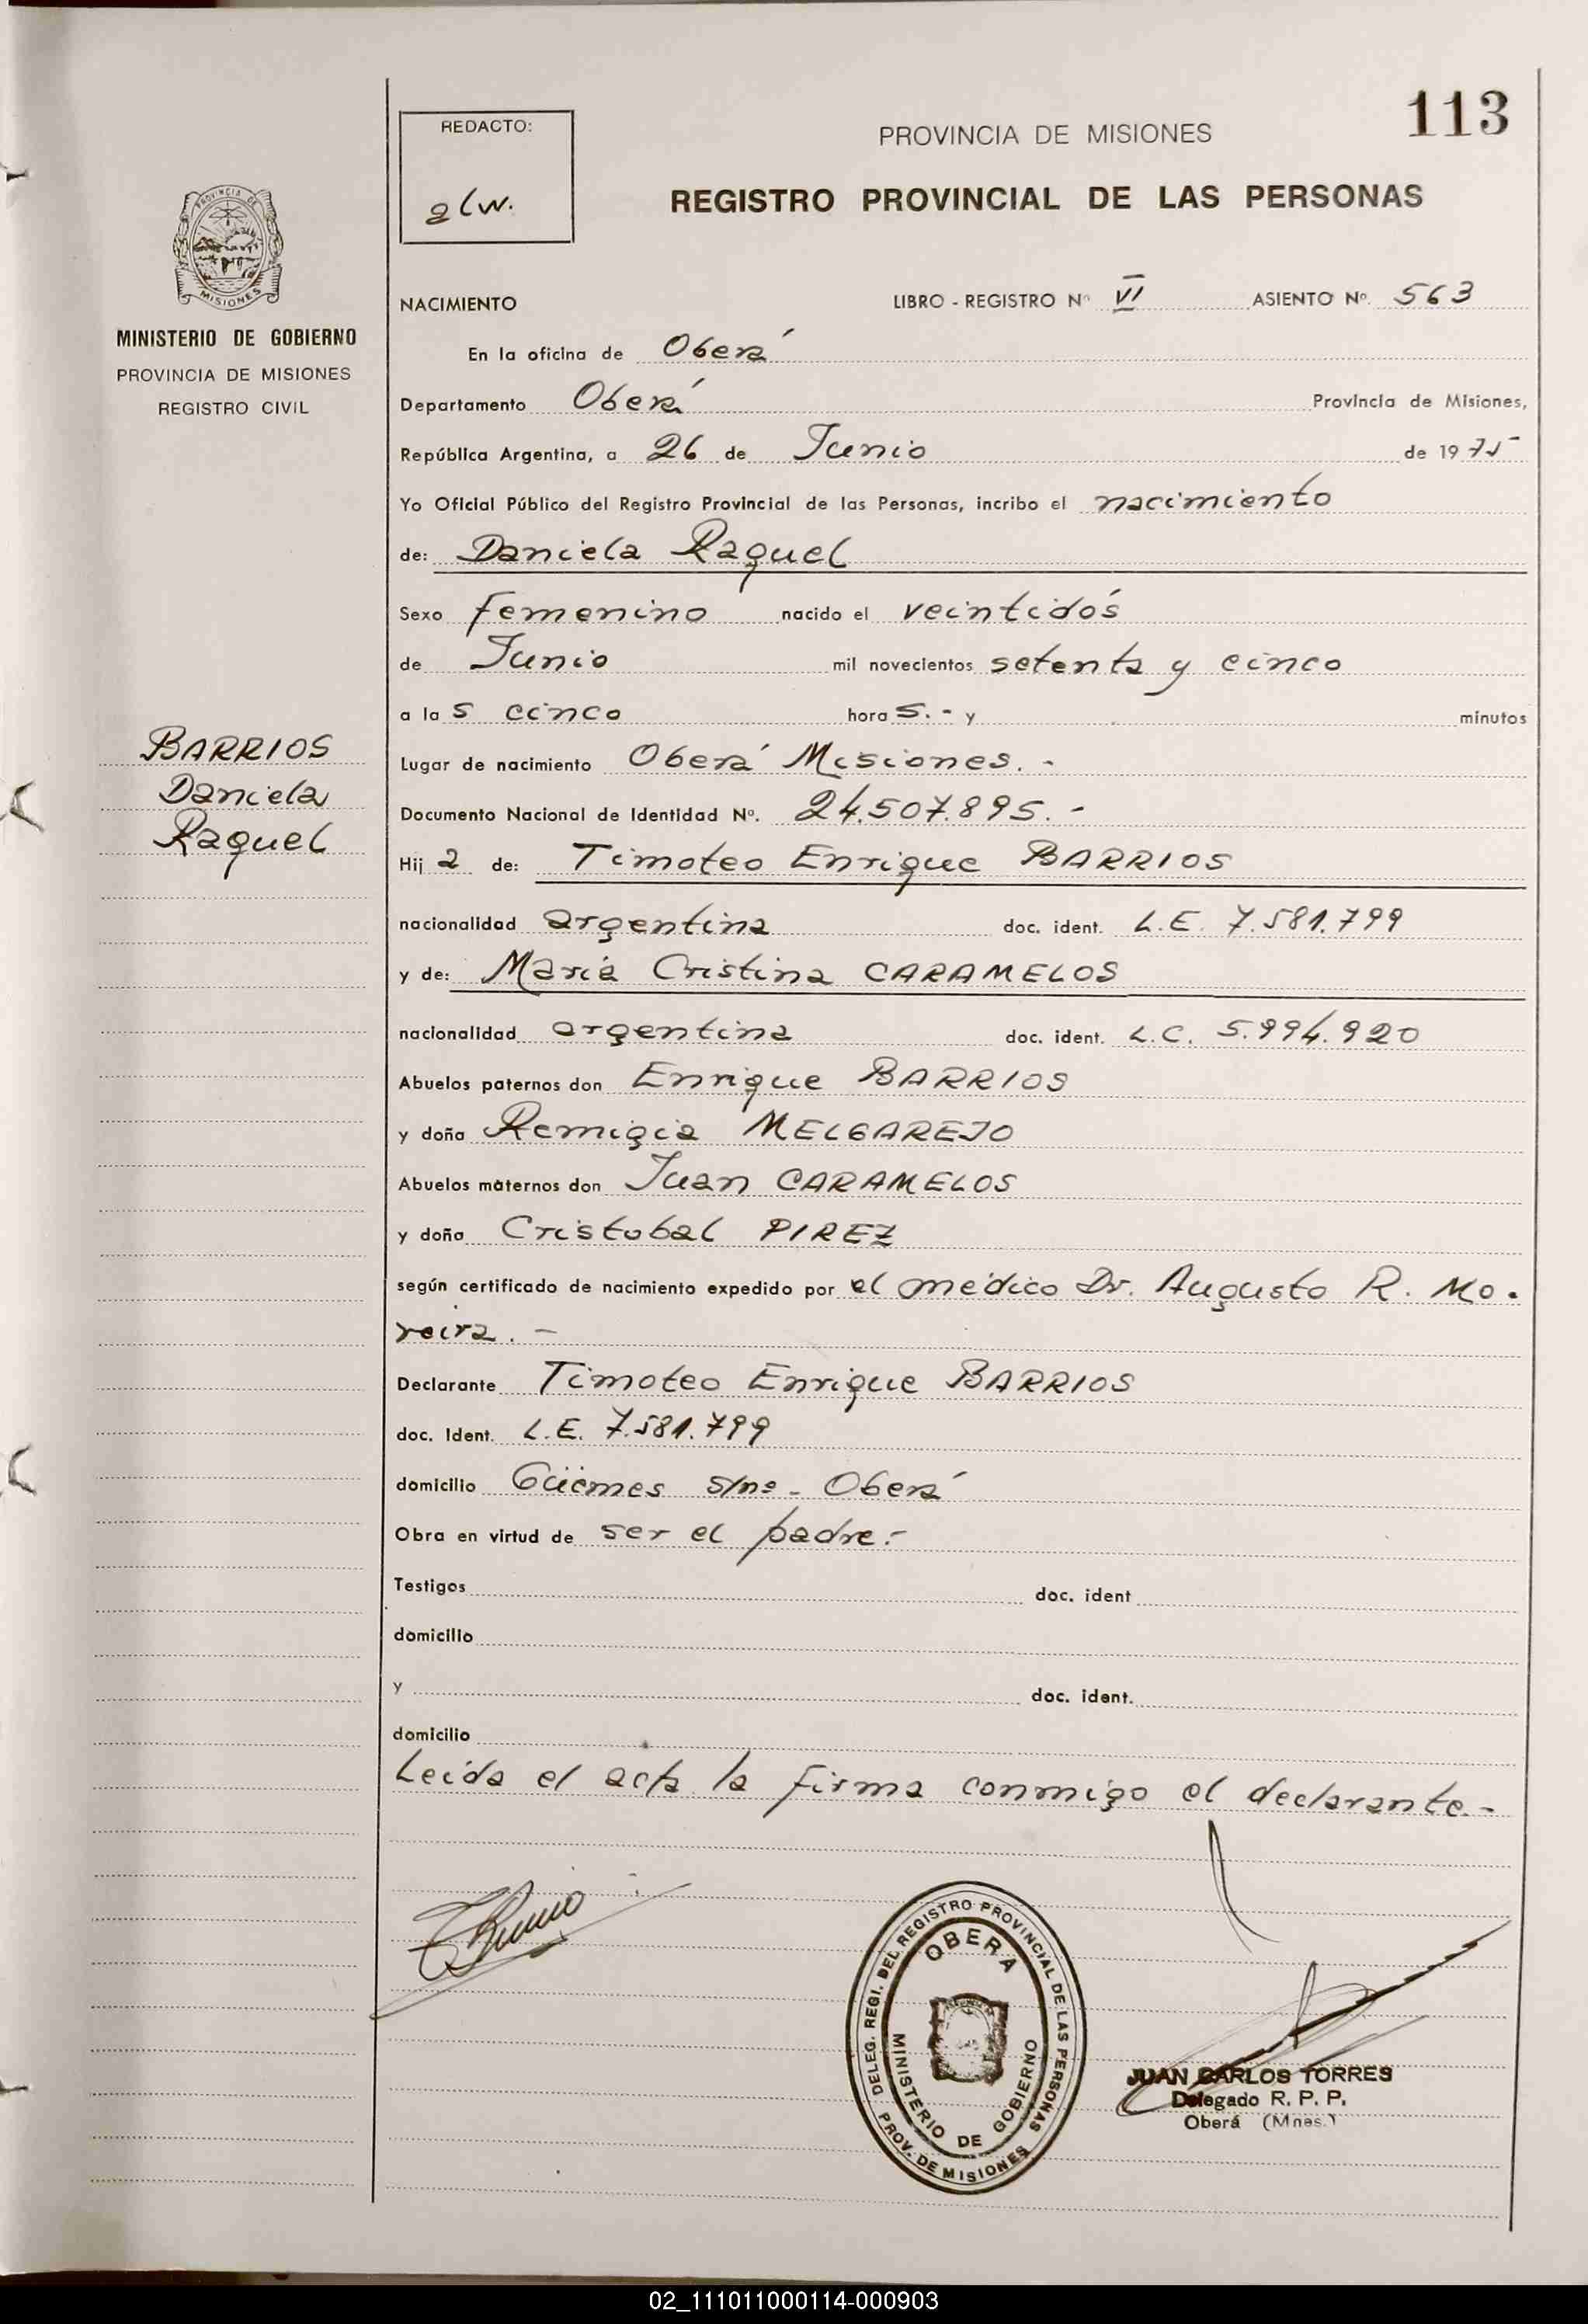 113
REDACTO:
alw.
PROVINCIA DE MISIONES
REGISTRO PROVINCIAL DE LAS PERSONAS
PROVINCIA DE
MISIONES
MINISTERIO DE GOBIERNO
PROVINCIA DE MISIONES
REGISTRO CIVIL
NACIMIENTO LIBRO - REGISTRO Nº VI ASIENTO Nº. 563
En la oficina de Oberá
Departamento Oberá Provincia de Misiones,
República Argentina, a 26 de Junio de 1975
Yo Oficial Público del Registro Provincial de las Personas, incribo el nacimiento
de: Daniela Raquel
Sexo femenino nacido el veintidós
de Junio mil novecientos setenta y cinco
a la s cinco hora s.- y minutos
BARRIOS
Daniela
Raquel
Lugar de nacimiento Oberá Misiones.-
Documento Nacional de Identidad Nº. 24.507.895.-
Hij a de: Timoteo Enrique BARRIOS
nacionalidad argentina doc. ident. L.E. 7.581.799
y de: María Cristina CARAMELOS
nacionalidad argentina doc. ident. L.C. 5.994.920
Abuelos paternos don Enrique BARRIOS
y doña Remigia MELGAREJO
Abuelos maternos don Juan CARAMELOS
y doña Cristobal PIREZ
según certificado de nacimiento expedido por el médico Dr. Augusto R. Mo-
reira.-
Declarante Timoteo Enrique BARRIOS
doc. Ident. L.E. 7.581.799
domicilio Güemes s/nº - Oberá
Obra en virtud de ser el padre.-
Testigos doc. ident
domicilio
y doc. ident.
domicilio
Leída el acta la firma conmigo el declarante.-
DELEG. REGI. DEL REGISTRO PROVINCIAL DE LAS PERSONAS
OBERA
MINISTERIO DE GOBIERNO
PROV. DE MISIONES
JUAN CARLOS TORRES
Delegado R. P. P.
Oberá (Mnes.)
02_111011000114-000903